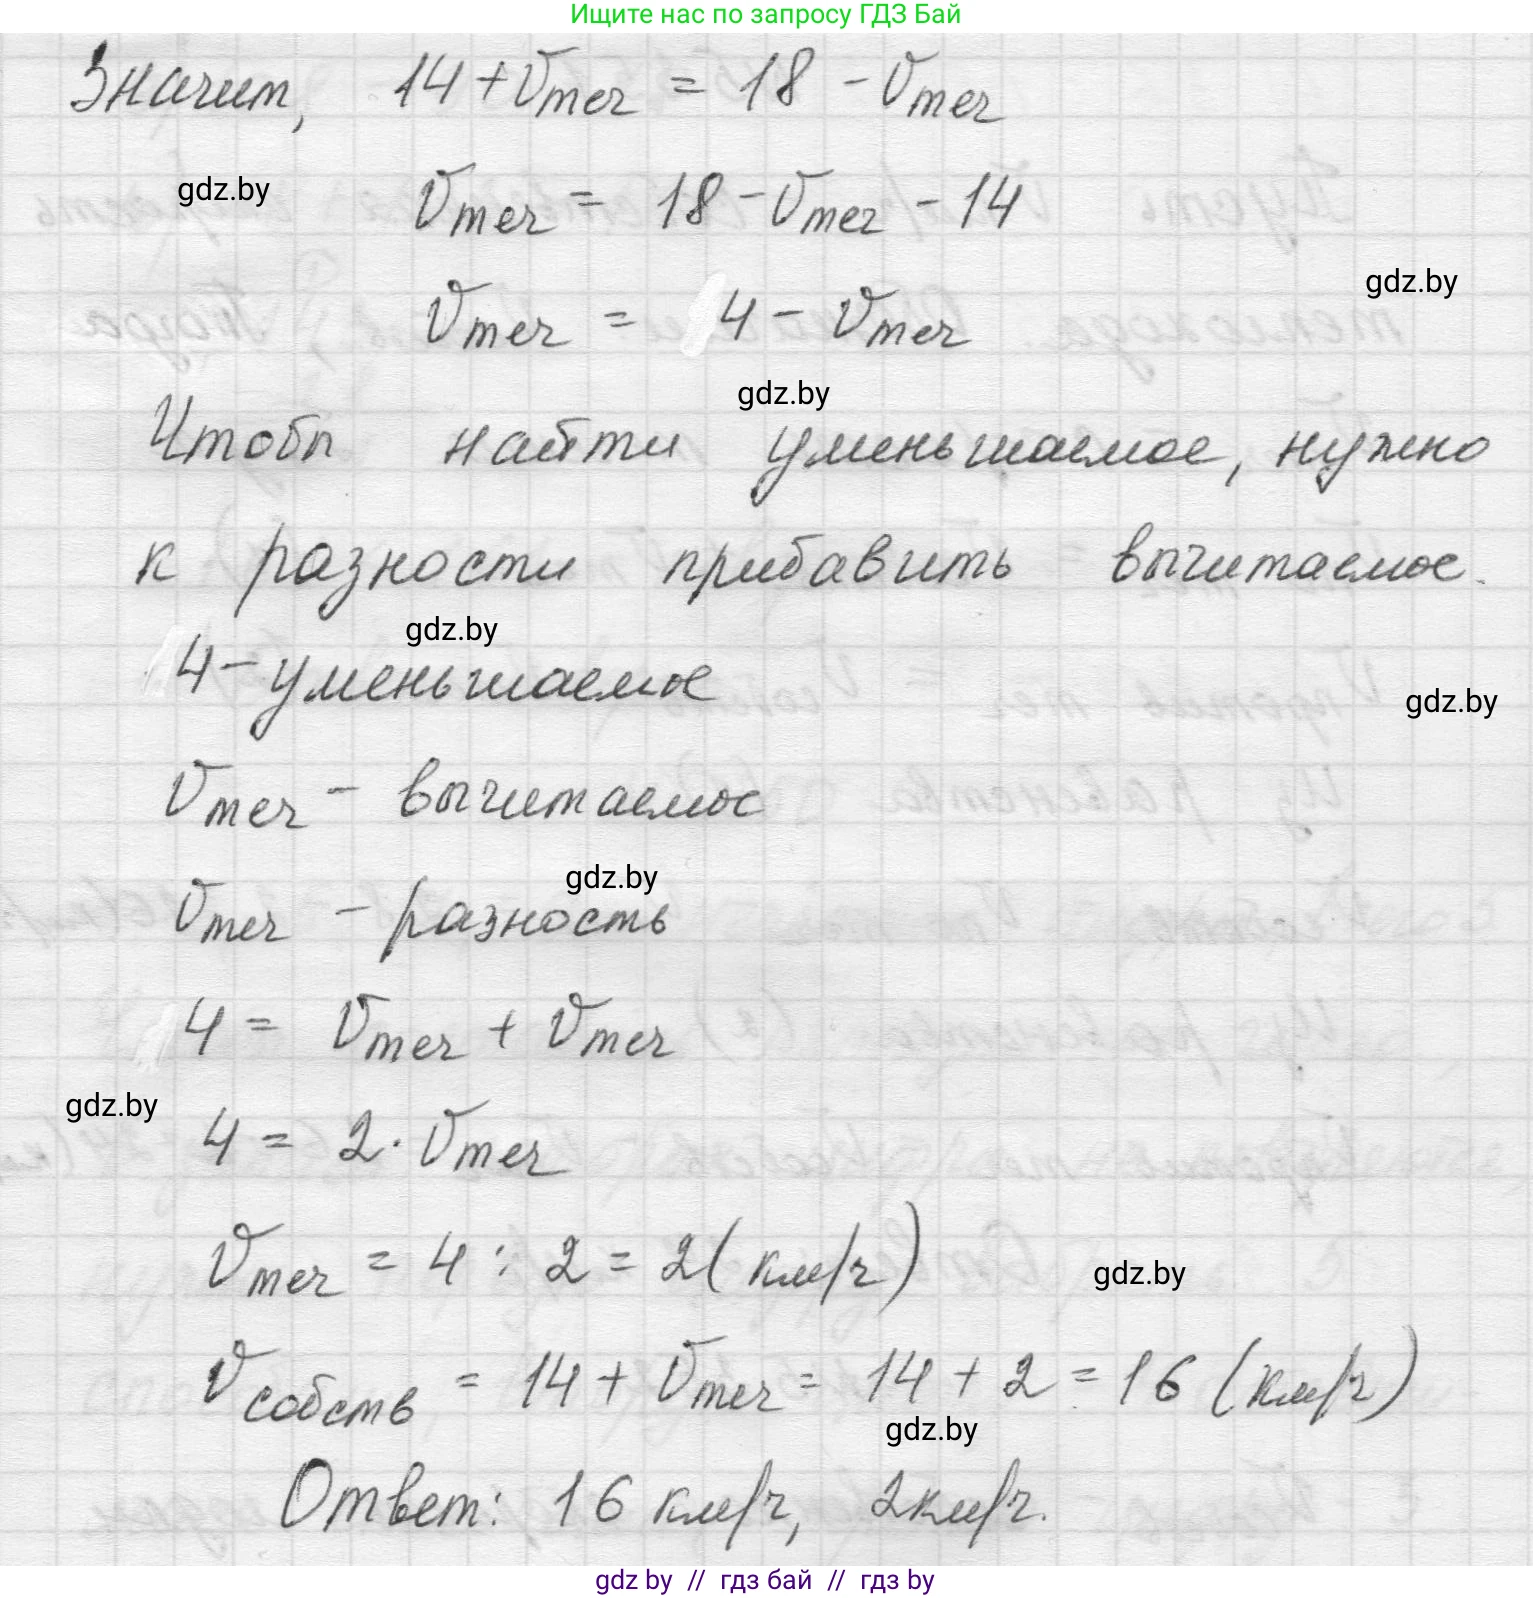 Ищите нас по запросу ГДЗ Бай
Значит, 14 + Vтеч = 18 - Vтеч
gdz.by
Vтеч = 18 - Vтеч - 14
gdz.by
Vтеч = 4 - Vтеч
gdz.by
Чтобы найти уменьшаемое, нужно
к разности прибавить вычитаемое.
gdz.by
4 - уменьшаемое
gdz.by
Vтеч - вычитаемое
gdz.by
Vтеч - разность
4 = Vтеч + Vтеч
gdz.by
4 = 2 · Vтеч
Vтеч = 4 : 2 = 2 (км/ч)
gdz.by
Vсобств = 14 + Vтеч = 14 + 2 = 16 (км/ч)
gdz.by
Ответ: 16 км/ч, 2 км/ч.
gdz by // гдз бай // гдз by